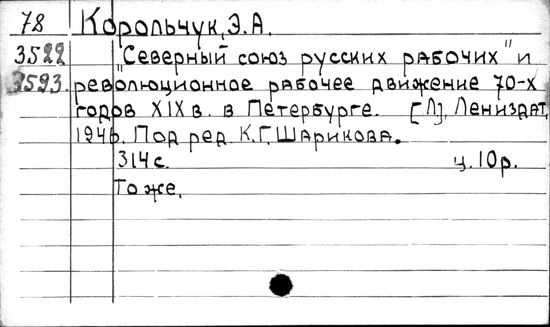 78 Корольчук, Э.А.
3522 "Северный союз русских рабочих" и
3523. революционное рабочее движение 70-х
годов XIX в. в Петербурге. [Л], Лениздат,
1946. Под ред. К.Г. Шарикова.
314 с. ц. 10 р.
То же.